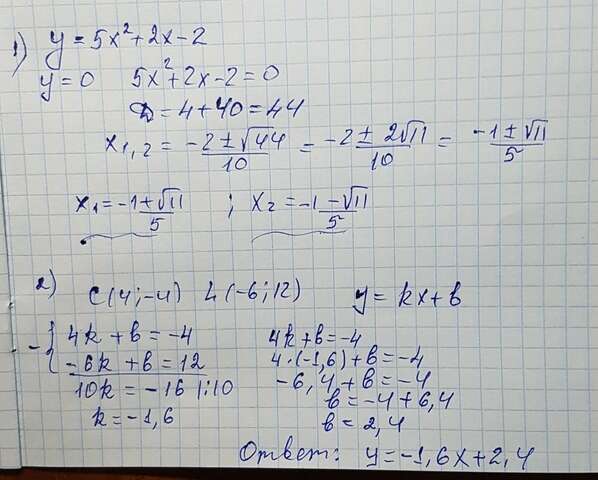 1) y = 5x² + 2x - 2
y = 0   5x² + 2x - 2 = 0
D = 4 + 40 = 44
x₁,₂ = (-2 ± √44)/10 = (-2 ± 2√11)/10 = (-1 ± √11)/5
x₁ = (-1 + √11)/5 ; x₂ = (-1 - √11)/5
2) C(4; -4)   L(-6; 12)   y = kx + b
- { 4k + b = -4
-6k + b = 12
10k = -16 |:10
k = -1,6
4k + b = -4
4·(-1,6) + b = -4
-6,4 + b = -4
b = -4 + 6,4
b = 2,4
Ответ: y = -1,6x + 2,4